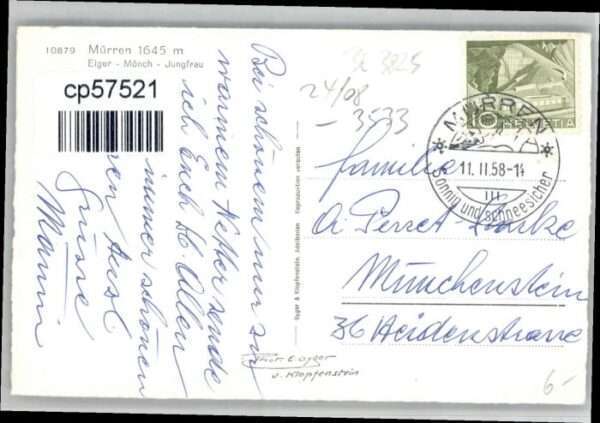 10879 Mürren 1645 m
Eiger - Mönch - Jungfrau
cp57521
Bei schönem und
warmem Wetter sende
ich Euch Allen
immer schönen
Aust
Grüsse
Mammi
Gyger & Klopfenstein, Adelboden Reproduction verboten
24/08
- 3533
10
HELVETIA
MÜRREN
11. II. 58 - 14
Sonnig und schneesicher
Familie
A. Perret-
Münchenstein
36 Heidenstrasse
Gyger
u. Klopfenstein
6.-